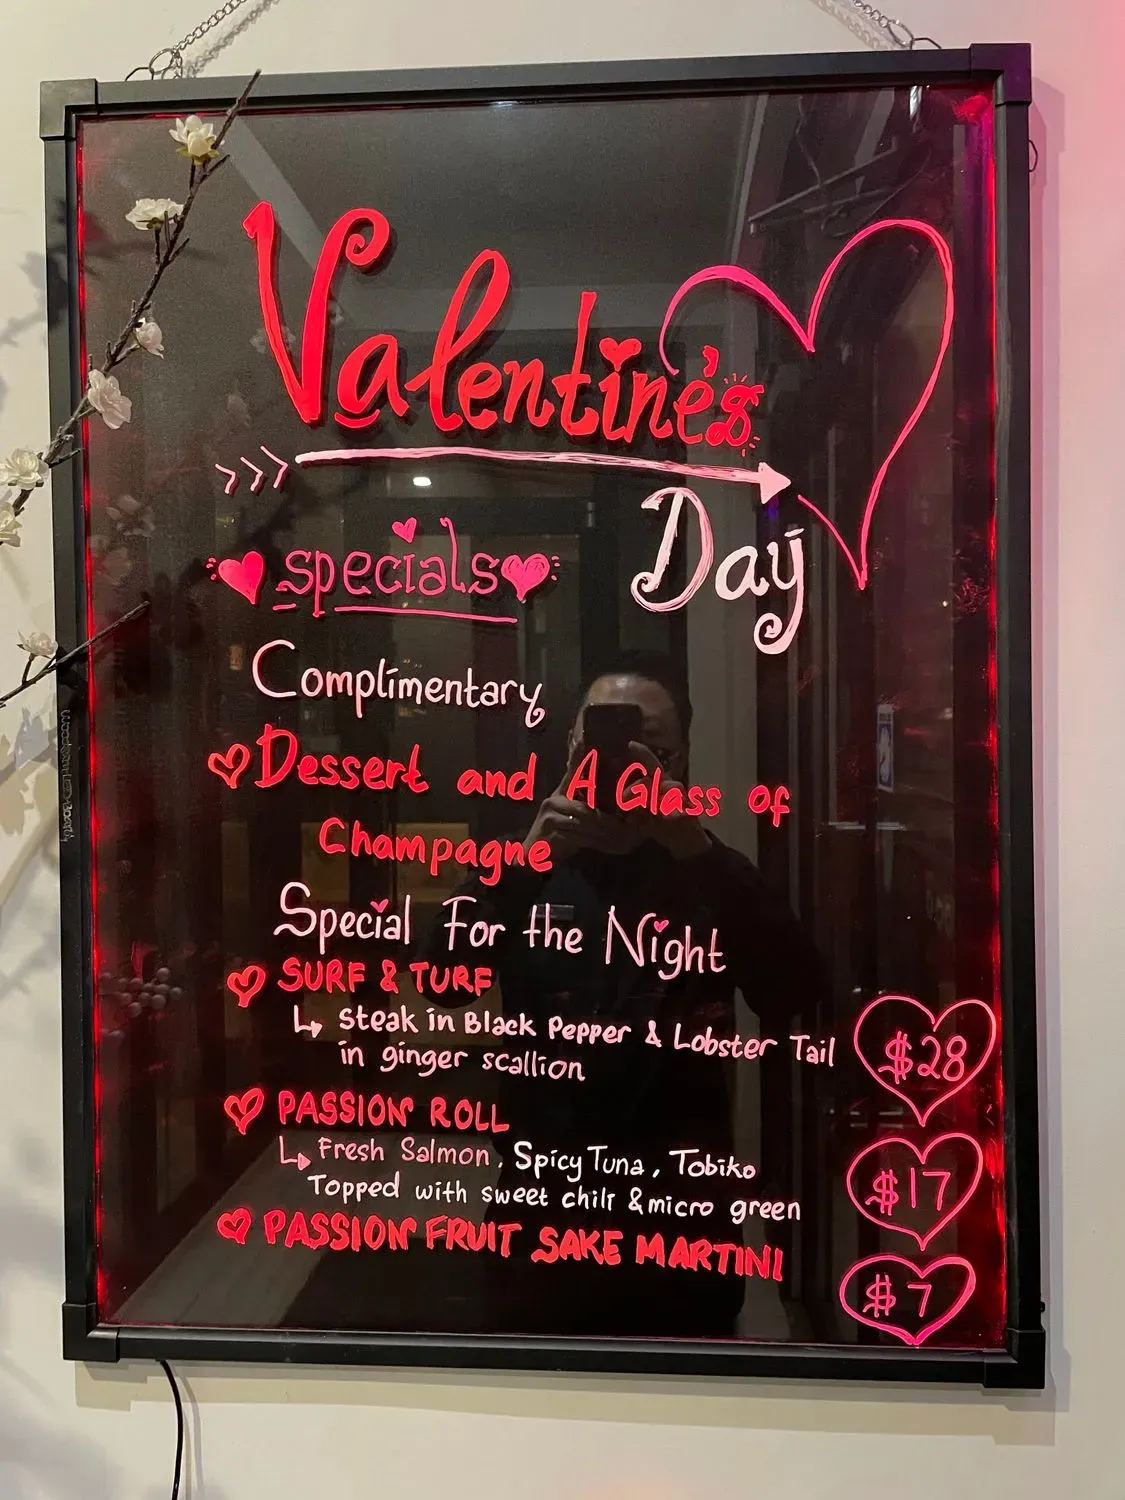 Valentine's
Day
specials
Complimentary
Dessert and A Glass of
Champagne
Special For the Night
SURF & TURF
Steak in Black Pepper & Lobster Tail
in ginger scallion
$28
PASSION ROLL
Fresh Salmon, Spicy Tuna, Tobiko
Topped with sweet chili & micro green
$17
PASSION FRUIT SAKE MARTINI
$7